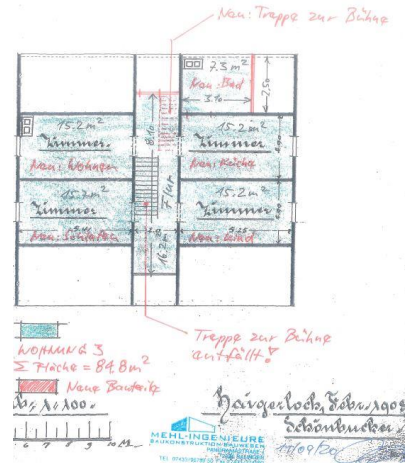 Neu: Treppe zur Bühne
7.3 m²
Neu: Bad
3.10
2,50
15.2 m²
Zimmer.
Neu: Wohnen
8.10
15.2 m²
Zimmer.
Neu: Küche
Flur
15.2 m²
Zimmer
Neu: Schlafen
15.2 m²
Zimmer
Neu: Kind
5.25
16.2 m²
Treppe zur Bühne
entfällt!
WOHNUNG 3
Σ Fläche = 84.8 m²
Neue Bauteile
1:100.
6 7 8 9 10 M.
Haigerloch, Febr. 1909
Schönbucher.
MEHL-INGENIEURE
BAUKONSTRUKTION BAUWESEN
11/09/20